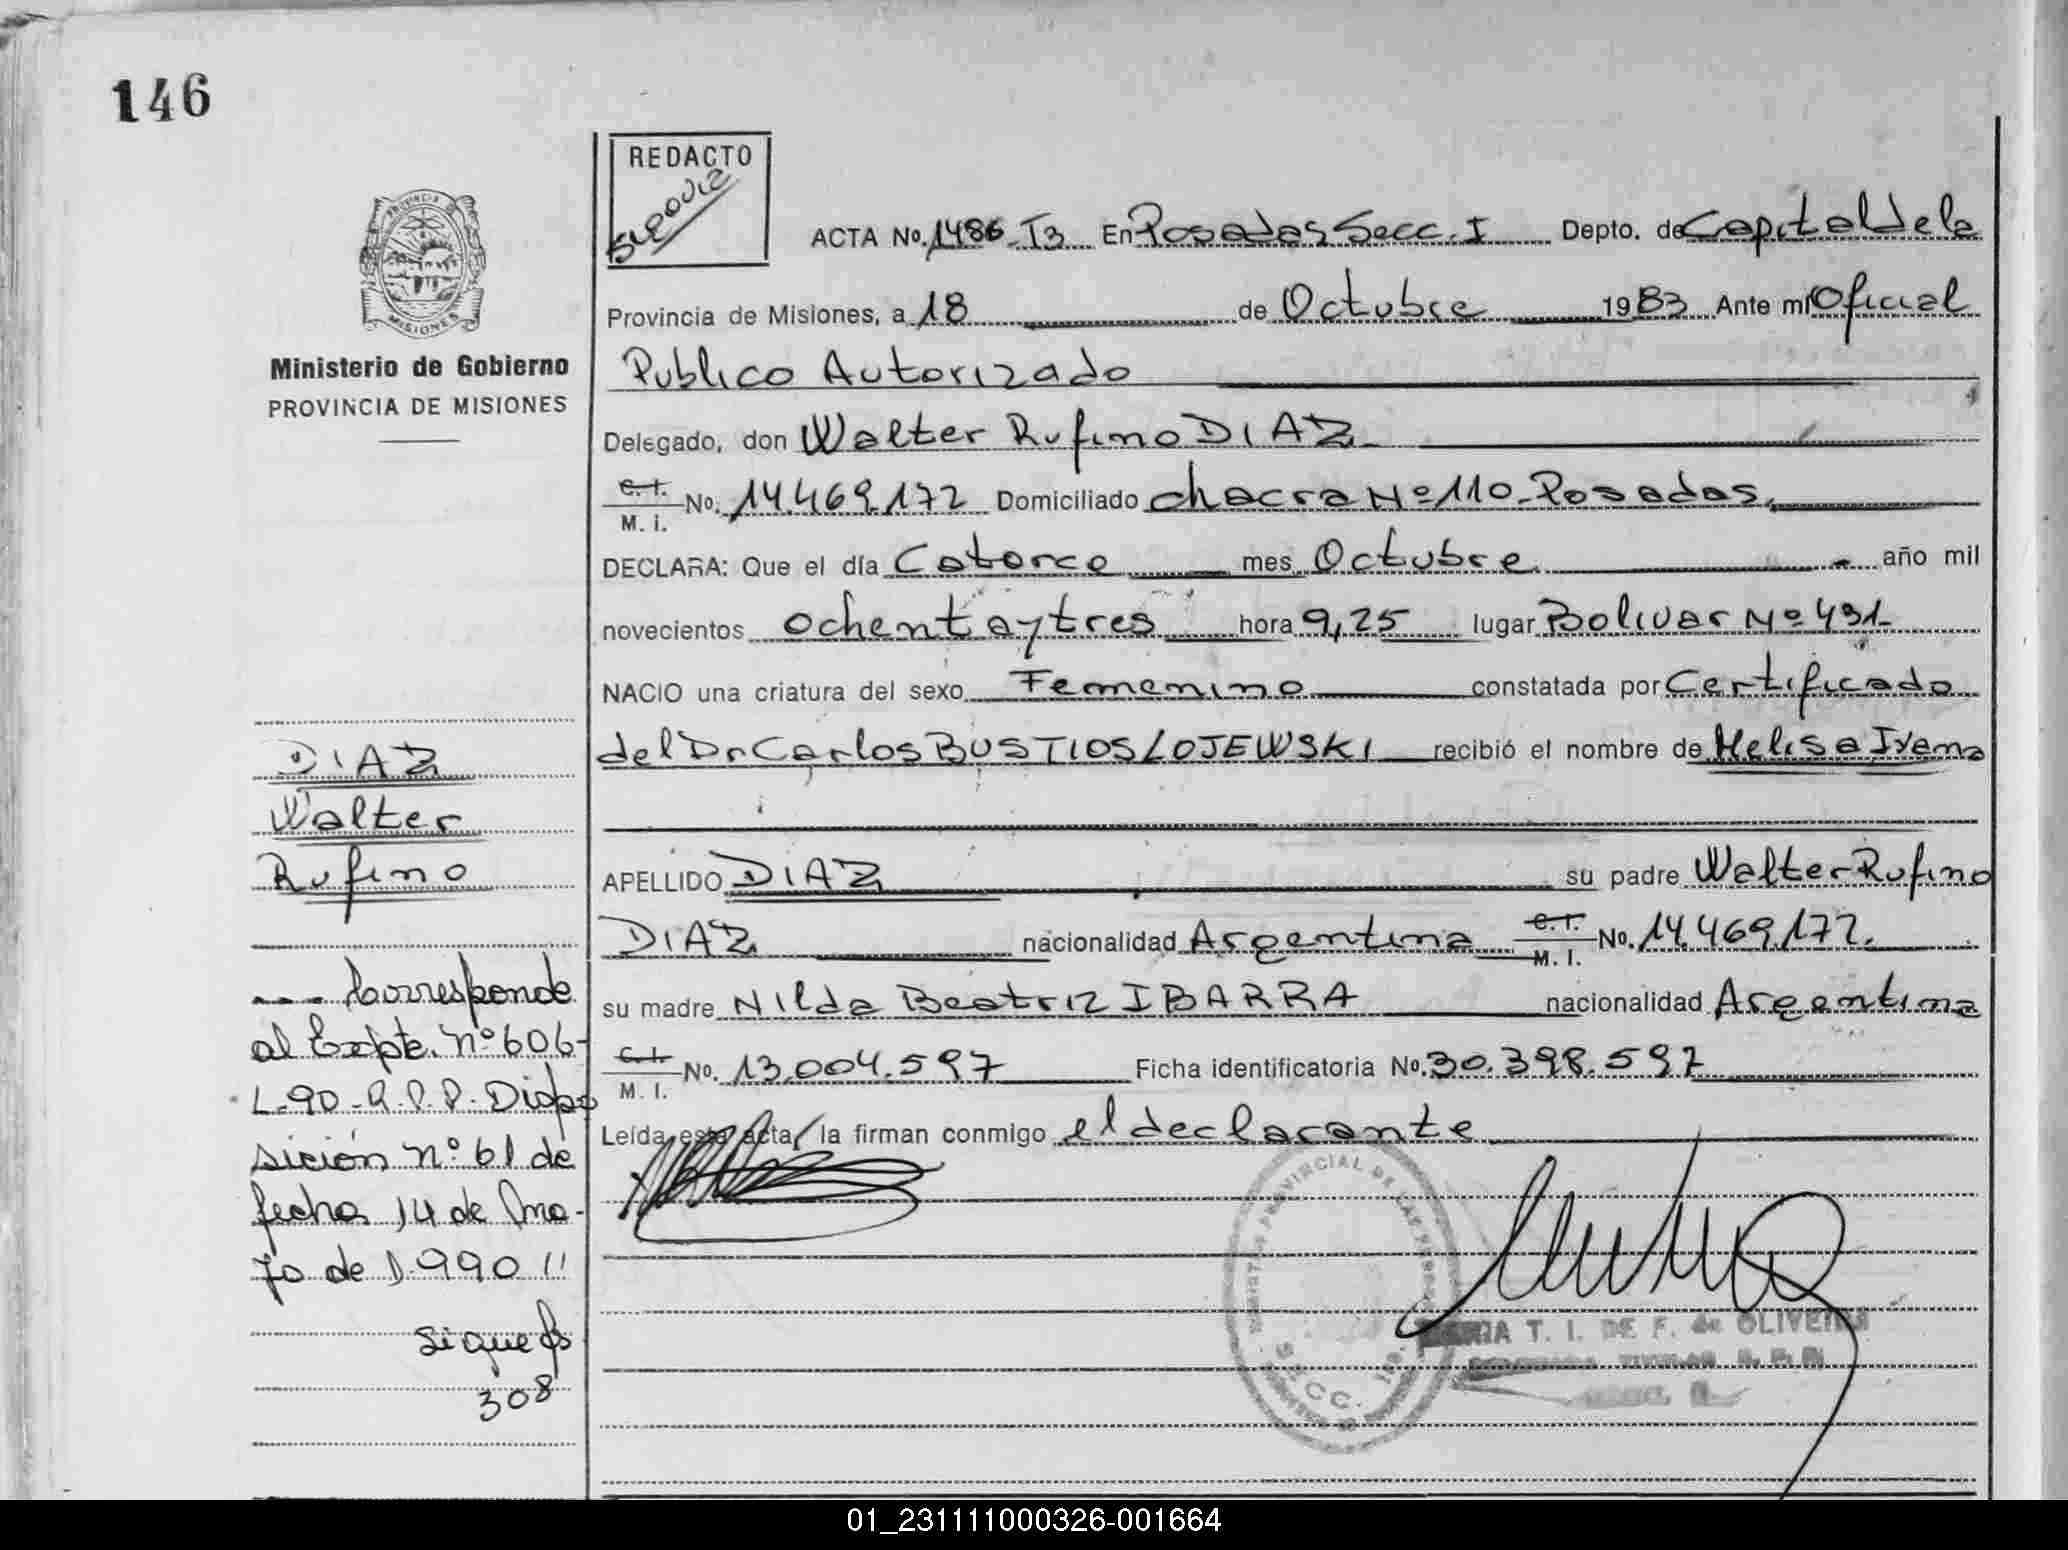 146
REDACTO
PROVINCIA DE
MISIONES
ACTA No. 1486-T3 En Posadas Secc. I Depto. de Capital de la
Provincia de Misiones, a 18 de Octubre 1983 Ante mi Oficial
Publico Autorizado
Ministerio de Gobierno
PROVINCIA DE MISIONES
Delegado, don Walter Rufino DIAZ
C. I.
M. i. No. 14.469.172 Domiciliado chacra Nº 110-Posadas
DECLARA: Que el día Catorce mes Octubre año mil
novecientos ochenta y tres hora 9,25 lugar Bolivar Nº 431-
NACIO una criatura del sexo Femenino constatada por Certificado
del Dr Carlos BUSTIOS LOJEWSKI recibió el nombre de Melisa Ivana
APELLIDO DIAZ su padre Walter Rufino
DIAZ nacionalidad Argentina C. I.
M. I. No. 14.469.172.
su madre Nilda Beatriz IBARRA nacionalidad Argentina
C. I.
M. I. No. 13.004.597 Ficha identificatoria No. 30.398.597
Leída esta acta, la firman conmigo el declarante
DIAZ
Walter
Rufino
--- Corresponde
al Expte. nº 606-
L-90-R.P.P. Dispo
sición nº 61 de
fecha 14 de Ma-
yo de 1.990 //
sigue fs
308
REGISTRO PROVINCIAL DE LAS PERSONAS
SECC. 1ra.
T. I. DE F. de OLIVEIRA
01_231111000326-001664